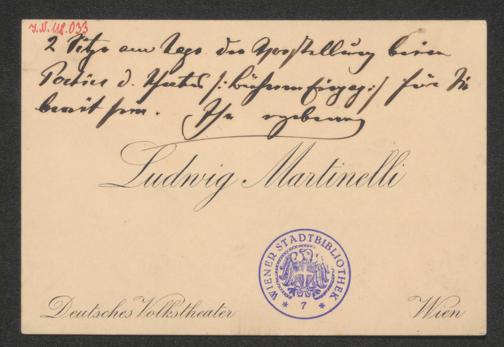 J.N. 118.033
2 Sitze am Tage der Vorstellung beim
Portier d. Theaters /: Bühnen Eingang :/ für Sie
bereit sein. Ihr ergebener
Ludwig Martinelli
WIENER STADTBIBLIOTHEK
* 7 *
Deutsches Volkstheater Wien